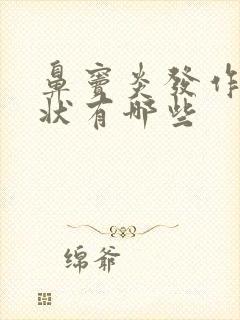 鼻窦炎發作
状有哪些
绵爷